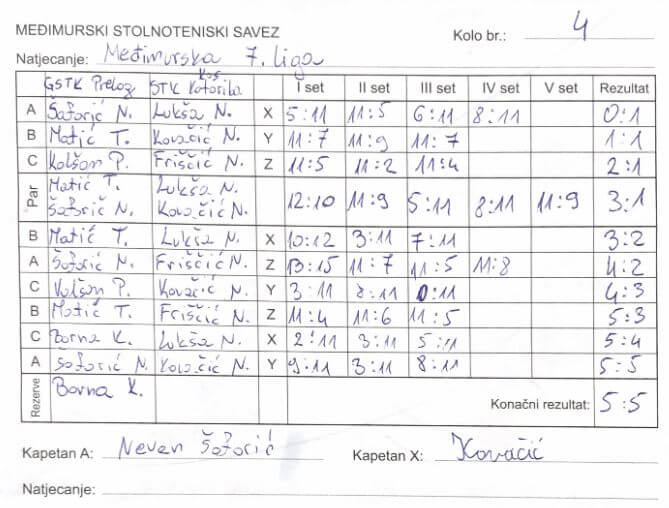 MEĐIMURSKI STOLNOTENISKI SAVEZ Kolo br.: 4
Natjecanje: Međimurska 7. liga
GSTK Prelog STK Kotoriba I set II set III set IV set V set Rezultat
A Šaforić N. Lukša N. X 5:11 11:5 6:11 8:11 0:1
B Matić T. Kovačić N. Y 11:7 11:9 11:7 1:1
C Kolšan P. Friščić N. Z 11:5 11:2 11:4 2:1
Par Matić T. Šaforić N. Lukša N. Kovačić N. 12:10 11:9 5:11 8:11 11:9 3:1
B Matić T. Lukša N. X 10:12 3:11 7:11 3:2
A Šaforić N. Friščić N. Z 13:15 11:7 11:5 11:8 4:2
C Kolšan P. Kovačić N. Y 3:11 8:11 0:11 4:3
B Matić T. Friščić N. Z 11:4 11:6 11:5 5:3
C Borna K. Lukša N. X 2:11 3:11 5:11 5:4
A Šaforić N. Kovačić N. Y 9:11 3:11 8:11 5:5
Rezerve Borna K. Konačni rezultat: 5:5
Kapetan A: Neven Šaforić Kapetan X: Kovačić
Natjecanje: